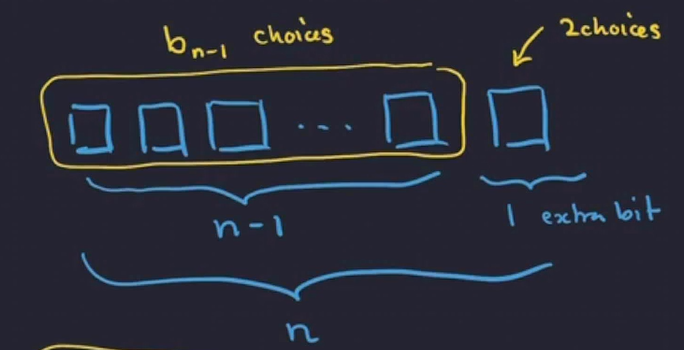 b_{n-1} choices
2choices
...
n-1
1 extra bit
n